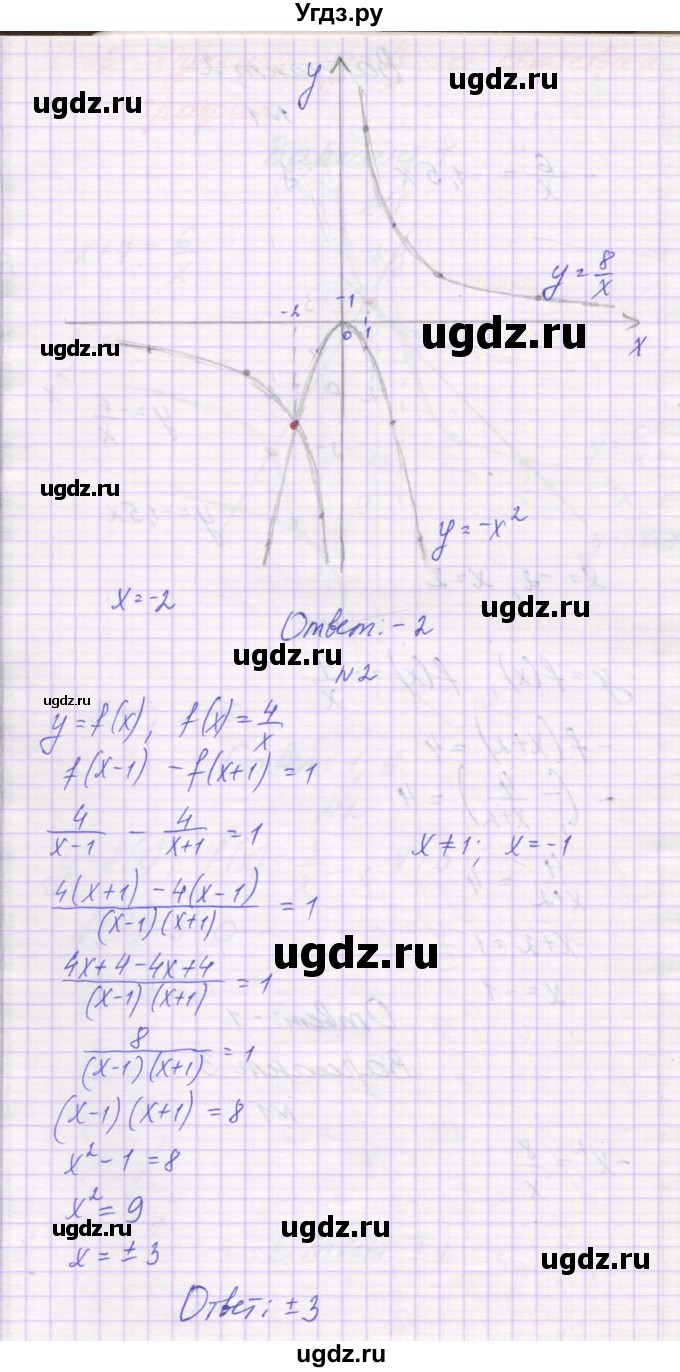 Угдз.ру
ugdz.ru
ugdz.ru
y
y = 8/x
-2
-1
0
1
x
ugdz.ru
ugdz.ru
ugdz.ru
y = -x²
x = -2
ugdz.ru
Ответ: -2
ugdz.ru
№2
ugdz.ru
y = f(x), f(x) = 4/x
f(x-1) - f(x+1) = 1
4/(x-1) - 4/(x+1) = 1
x ≠ 1; x = -1
(4(x+1) - 4(x-1))/((x-1)(x+1)) = 1
ugdz.ru
(4x+4-4x+4)/((x-1)(x+1)) = 1
8/((x-1)(x+1)) = 1
(x-1)(x+1) = 8
x² - 1 = 8
x² = 9
ugdz.ru
ugdz.ru
x = ± 3
ugdz.ru
Ответ: ± 3
ugdz.ru